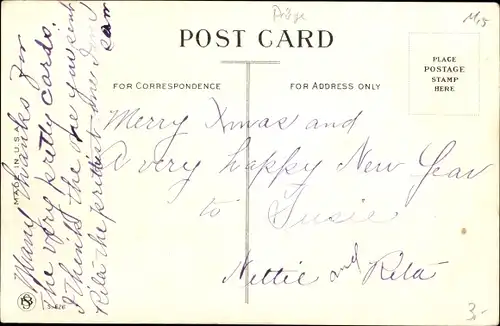 Präge
M15
POST CARD
FOR CORRESPONDENCE
FOR ADDRESS ONLY
PLACE
POSTAGE
STAMP
HERE
Merry Xmas and
A very happy New Year
to Susie
Nettie and Rita
Many thanks for
the very pretty cards.
I think the one you sent
Rita the prettiest one I ever
saw
MADE IN U.S.A.
3.-